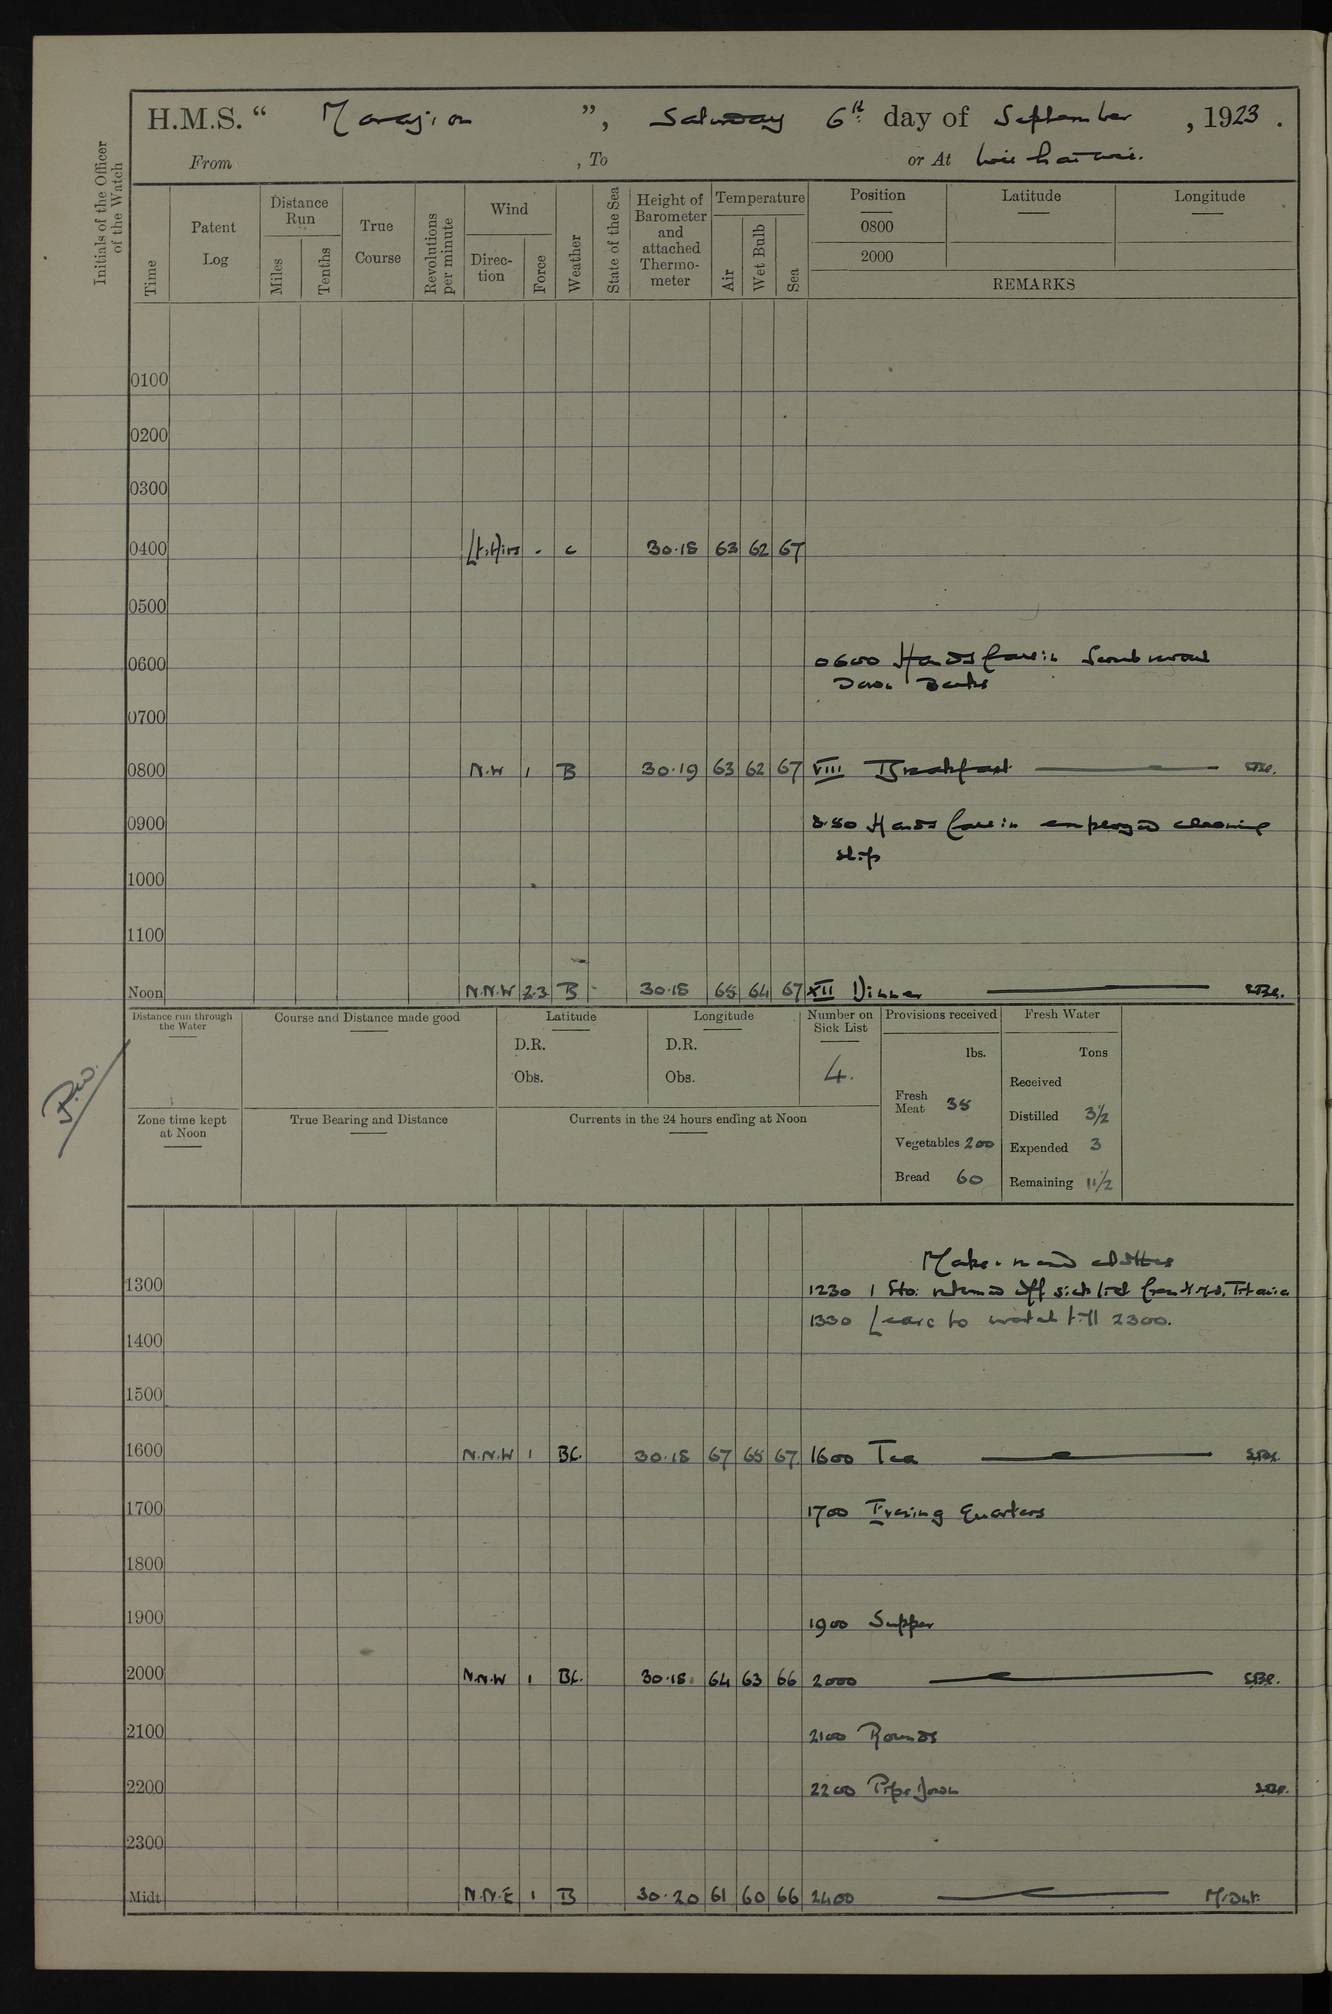 H.M.S. “ Marazion ”, Saturday 6th day of September , 1923 .
From , To or At Wei hai wei.
Initials of the Officer of the Watch
Time
Patent Log
Distance Run
Miles
Tenths
True Course
Revolutions per minute
Wind
Direc- tion
Force
Weather
State of the Sea
Height of Barometer and attached Thermo- meter
Temperature
Air
Wet Bulb
Sea
Position Latitude Longitude
0800
2000
REMARKS
0100
0200
0300
0400 Lt. Airs - c 30.18 63 62 67
0500
0600 0600 Hands fall in Scrub round
Down Decks
0700
0800 N.W 1 B 30.19 63 62 67 VIII Breakfast
0900 8.50 Hands fall in employed cleaning
ship
1000
1100
Noon N.N.W 2.3 B - 30.18 65 64 67 XII Dinner
Distance run through the Water
Course and Distance made good
Latitude
D.R.
Obs.
Longitude
D.R.
Obs.
Number on Sick List
4.
Provisions received
lbs.
Fresh Meat 35
Vegetables 200
Bread 60
Fresh Water
Tons
Received
Distilled 3½
Expended 3
Remaining 11½
Zone time kept at Noon
True Bearing and Distance
Currents in the 24 hours ending at Noon
Make & mend clothes
1300 1230 1 Sto. returned off sick list from H.M.S. Titania
1330 Leave to watch till 2300.
1400
1500
1600 N.N.W 1 BC. 30.18 67 65 67 1600 Tea
1700 1700 Evening Quarters
1800
1900 1900 Supper
2000 N.N.W 1 BC. 30.18 64 63 66 2000
2100 2100 Rounds
2200 2200 Pipe Down
2300
Midt N.N.E 1 B 30.20 61 60 66 2400 Midnt.